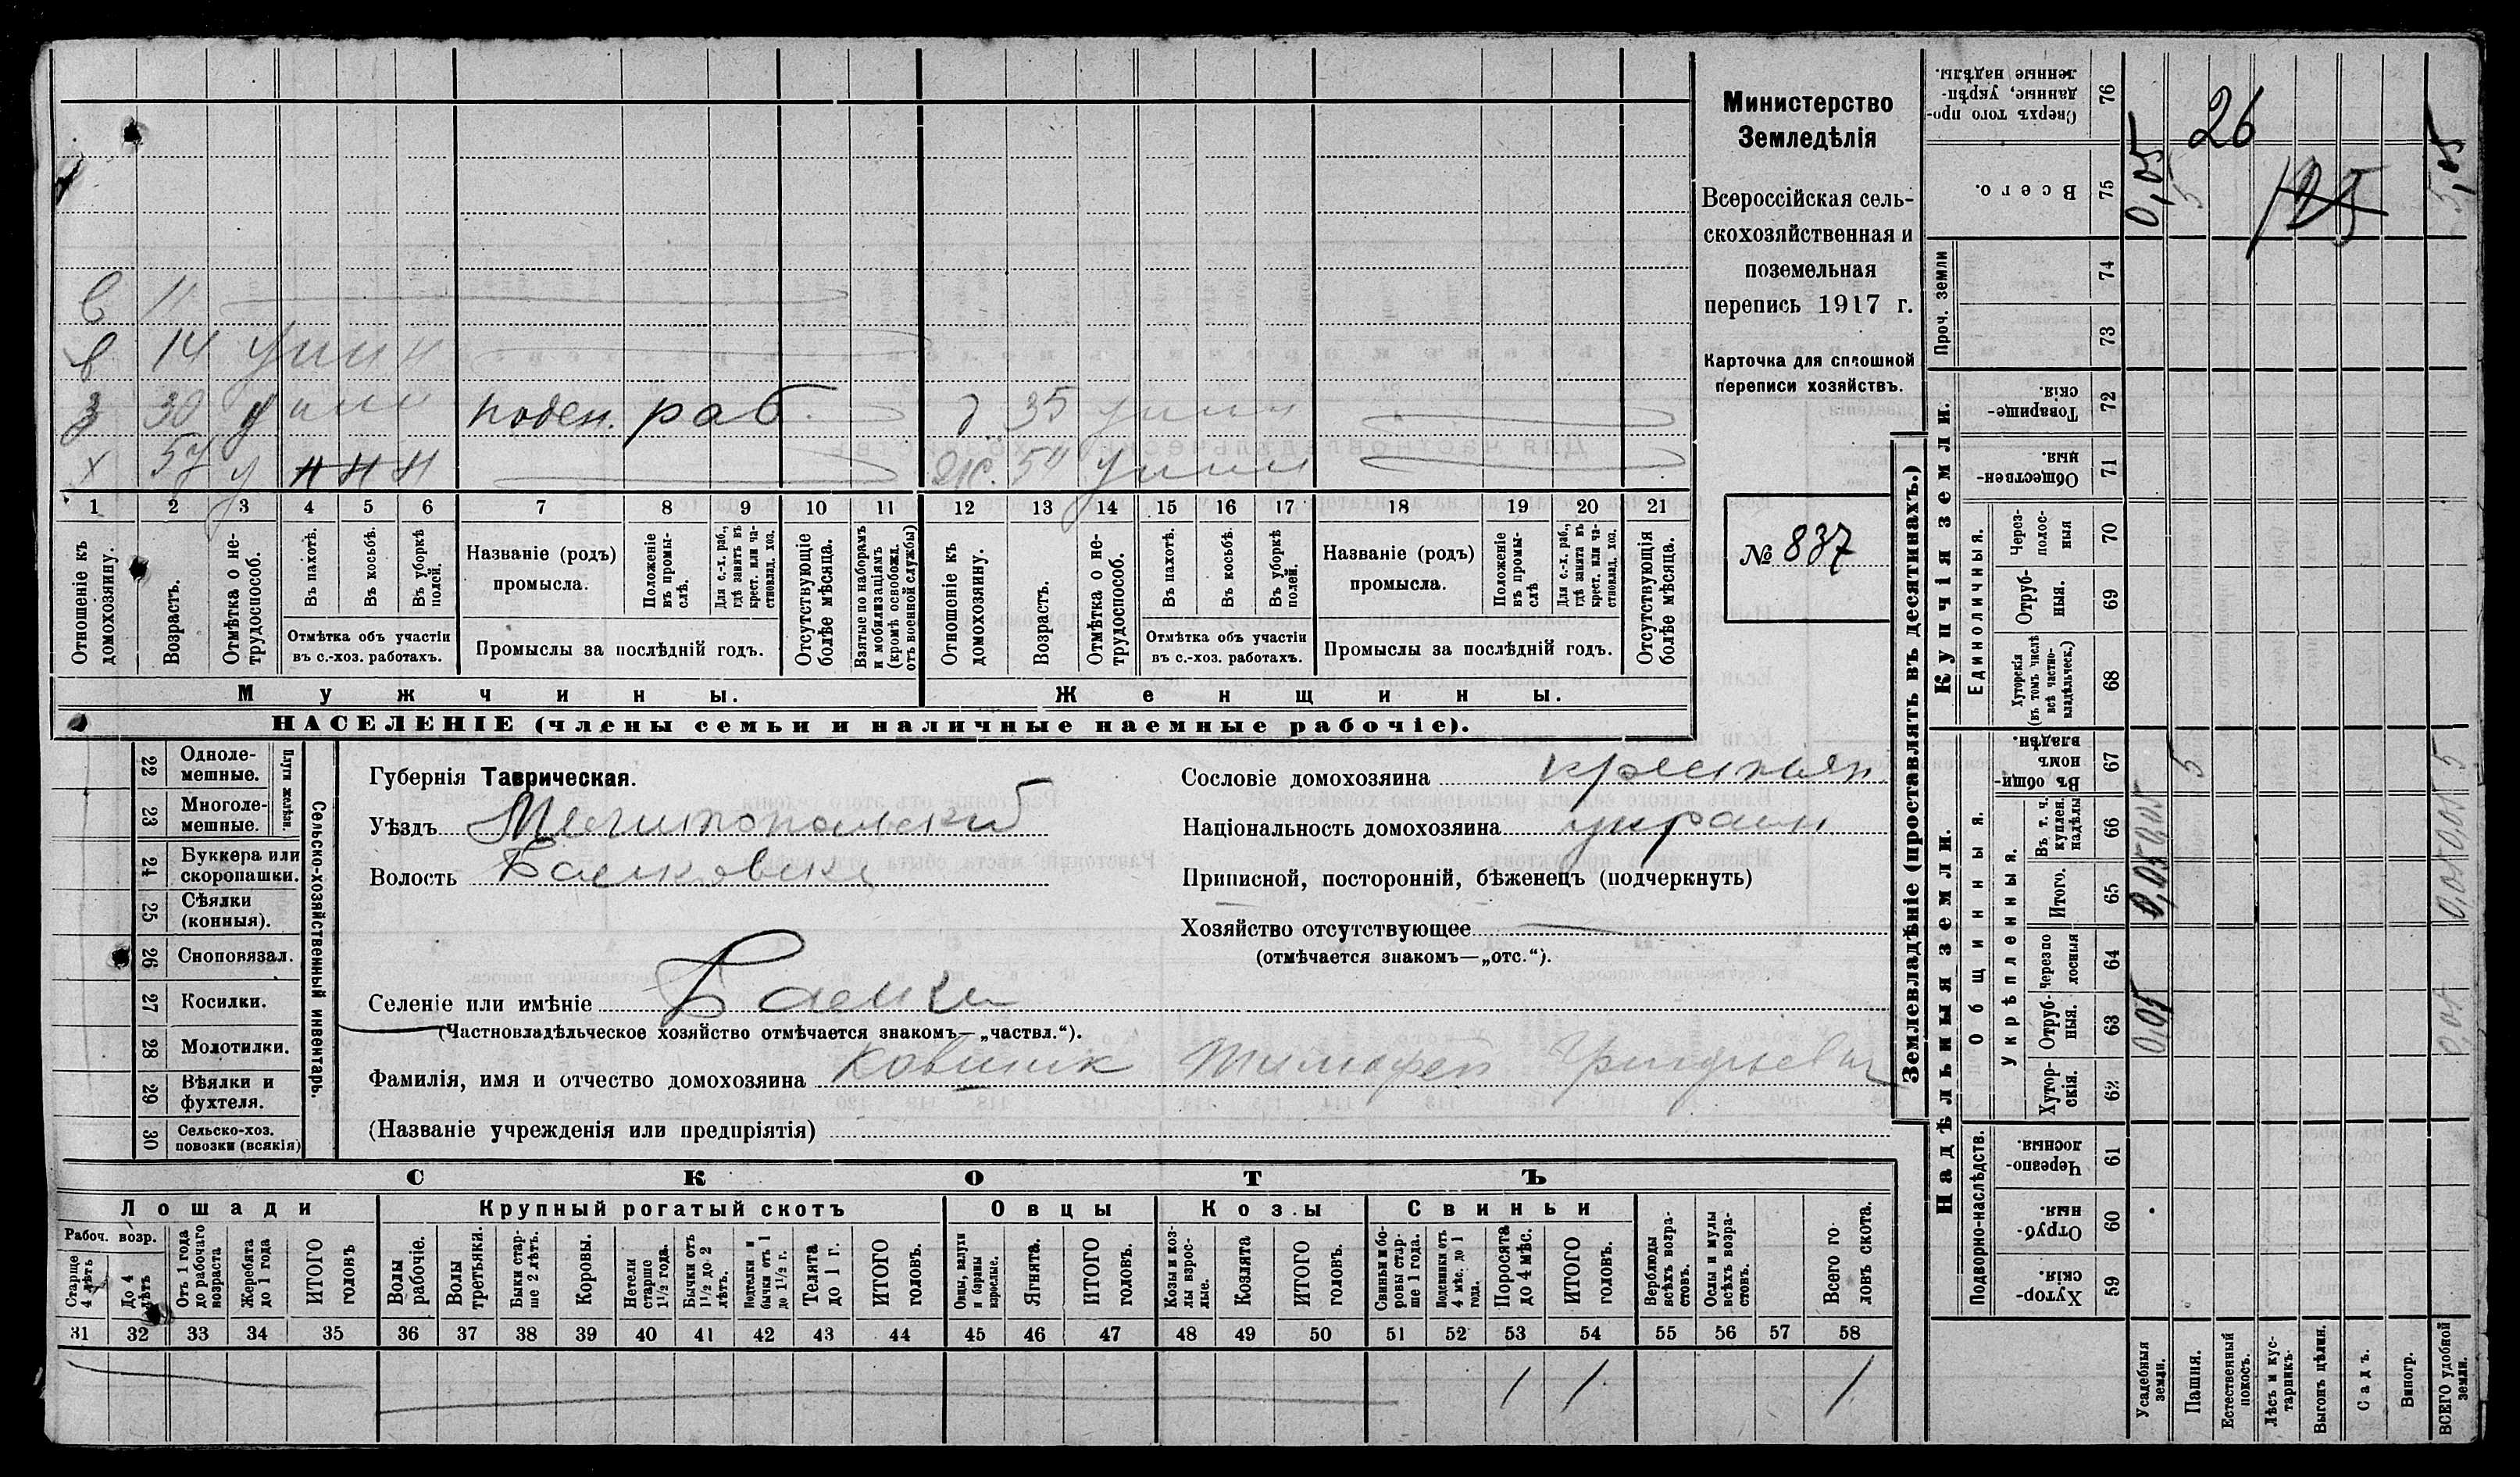 Министерство
Земледѣлія
Всероссійская сель-
скохозяйственная и
поземельная
перепись 1917 г.
Карточка для сплошной
переписи хозяйствъ.
№ 837
в 11
в 14
з 30 у поден. раб.
д 35
х 57 у н н н
54
1 2 3 4 5 6 7 8 9 10 11 12 13 14 15 16 17 18 19 20 21
Отношеніе къ домохозяину.
Возрастъ.
Отмѣтка о не-трудоспособ.
Въ пахотѣ.
Въ косьбѣ.
Въ уборкѣ полей.
Отмѣтка объ участіи въ с.-хоз. работахъ.
Названіе (родъ) промысла.
Положеніе въ промы-слѣ.
Для с.-х. раб., гдѣ занятъ въ крест. или ча-стновлад. хоз.
Промыслы за послѣдній годъ.
Отсутствующіе болѣе мѣсяца.
Взятые по наборамъ и мобилизаціямъ (кромѣ освобожд. отъ военной службы)
Отношеніе къ домохозяину.
Возрастъ.
Отмѣтка о не-трудоспособ.
Въ пахотѣ.
Въ косьбѣ.
Въ уборкѣ полей.
Отмѣтка объ участіи въ с.-хоз. работахъ.
Названіе (родъ) промысла.
Положеніе въ промы-слѣ
Для с.-х. раб., гдѣ занята въ крест. или ча-стновлад. хоз.
Промыслы за послѣдній годъ.
Отсутствующія болѣе мѣсяца.
Мужчины.
Женщины.
НАСЕЛЕНІЕ (члены семьи и наличные наемные рабочіе).
Сельско-хозяйственный инвентарь.
Плуги желѣзн.
22 Одноле-мешные.
23 Многоле-мешные.
24 Буккера или скоропашки.
25 Сѣялки (конныя).
26 Сноповязал.
27 Косилки.
28 Молотилки.
29 Вѣялки и фухтеля.
30 Сельско-хоз. повозки (всякія)
Губернія Таврическая.
Уѣздъ Мелитопольский
Волость Балковск
Селеніе или имѣніе Балки
(Частновладѣльческое хозяйство отмѣчается знакомъ—„частвл.“).
Фамилія, имя и отчество домохозяина Ковшик Тимофей Григорьевич
(Названіе учрежденія или предпріятія)
Сословіе домохозяина крестьян
Національность домохозяина украин
Приписной, посторонній, бѣженецъ (подчеркнуть)
Хозяйство отсутствующее
(отмѣчается знакомъ—„отс.“).
СКОТЪ
Лошади
Крупный рогатый скотъ
Овцы
Козы
Свиньи
Рабоч. возр.
Старще 4 лѣтъ
До 4 лѣтъ
Отъ 1 года до рабочаго возраста
Жеребята до 1 года
ИТОГО головъ
Волы рабочіе.
Волы третьяки.
Быки стар-ше 2 лѣтъ.
Коровы.
Нетели старше 1½ года.
Бычки отъ 1½ до 2 лѣтъ.
Подтелки и бычки отъ 1 до 1½ г.
Телята до 1 г.
ИТОГО головъ.
Овцы, валухи и бараны взрослые.
Ягнята.
ИТОГО головъ.
Козы и коз-лы взрос-лые.
Козлята
ИТОГО головъ.
Свиньи и бо-ровы стар-ше 1 года.
Подсвинки отъ 4 мѣс. до 1 года.
Поросята до 4 мѣс.
ИТОГО головъ.
Верблюды всѣхъ возра-стовъ.
Ослы и мулы всѣхъ возра-стовъ.
Всего го-ловъ скота.
31 32 33 34 35 36 37 38 39 40 41 42 43 44 45 46 47 48 49 50 51 52 53 54 55 56 57 58
1 1 1
Землевладѣніе (проставлять въ десятинахъ.)
Надѣльныя земли.
Купчія земли.
Проч. земли
Подворно-наслѣдств.
Общинныя.
Укрѣпленныя.
Единоличныя.
59 Хутор-скія.
60 Отруб-ныя.
61 Черезпо-лосныя.
62 Хутор-скія.
63 Отруб-ныя. 0,05
64 Черезпо лосныя
65 Итого. 0,05
66 Въ т. ч. куплен. надѣлы
67 Въ общи-номъ владѣн. 5 5
68 Хуторскія (въ томъ числѣ всѣ частно-владѣльческ.)
69 Отруб-ныя.
70 Через-полос-ныя
71 Обществен-ныя.
72 Товарище-скія.
73
74
75 Всего. 0,05 5 105
76 Сверхъ того про-данные, укрѣп-ленные надѣлы. 26
Усадебныя земли.
Пашня.
Естественный покосъ.
Лѣсъ и кус-тарникъ.
Выгонъ цѣлин.
Садъ.
Виногр.
ВСЕГО удобной земли.